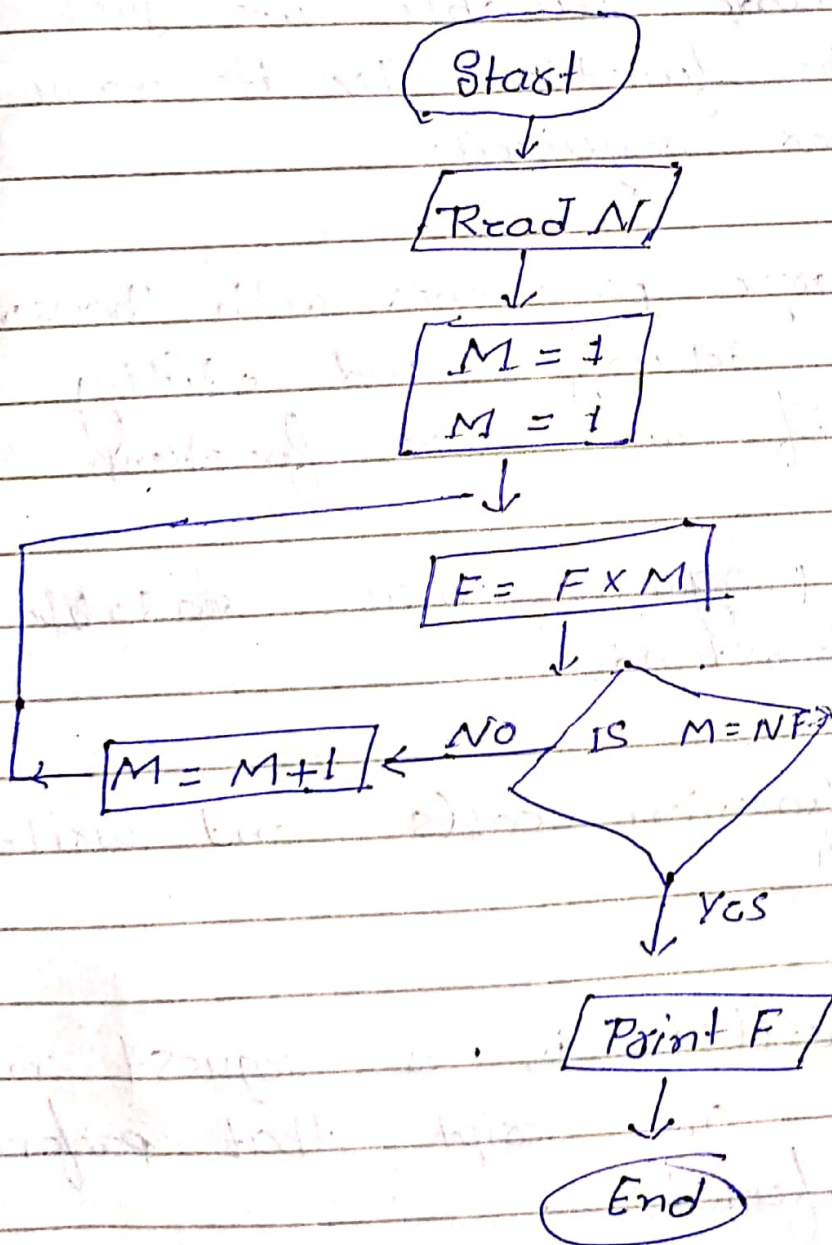 Start
Read N
M = 1
M = 1
F = F X M
NO IS M = NF?
M = M+1
Yes
Print F
End